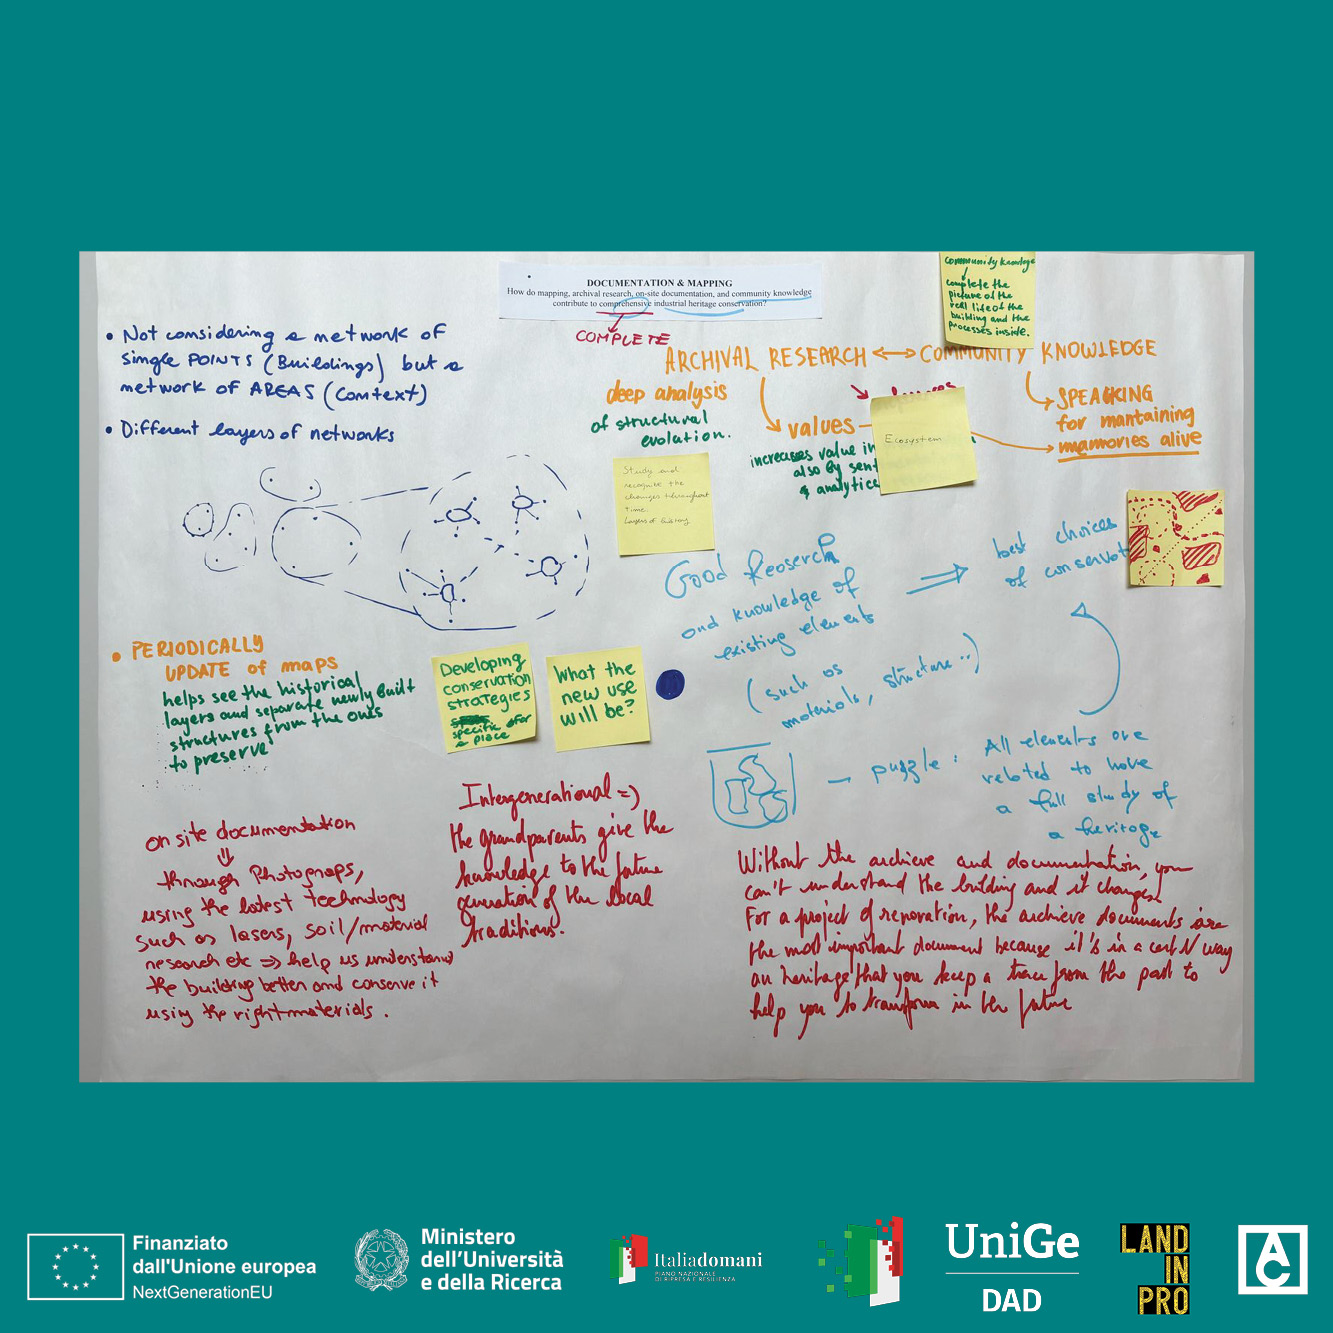 DOCUMENTATION & MAPPING
How do mapping, archival research, on-site documentation, and community knowledge
contribute to comprehensive industrial heritage conservation?
COMPLETE
• Not considering a network of
single POINTS (Buildings) but a
network of AREAS (Context)
• Different layers of networks
Community knowledge
complete the
picture of the
real life of the
building and the
processes inside.
ARCHIVAL RESEARCH ↔ COMMUNITY KNOWLEDGE
deep analysis
of structural
evolution.
values
increases value in
also by sent
& analytica
Ecosystem
SPEACKING
for mantaining
memories alive
Study and
recognize the
changes throughout
time.
Layers of history
Good Reaserch
and knowledge of
existing elements
(such as
materials, structure..)
best choices
of conservat
• PERIODICALLY
UPDATE of maps
helps see the historical
layers and separate newly built
structures from the ones
to preserve
Developing
conservation
strategies
specific for
a place
What the
new use
will be?
puzzle: All elements are
related to have
a full study of
a heritage
Intergenerational =>
the grandparents give the
knowledge to the future
generation of the local
traditions.
on site documentation
through Photograps,
using the latest technology
such as lasers, soil/material
research etc => help us understand
the building better and conserve it
using the right materials.
Without the archieve and documentation, you
can't understand the building and it changes
For a project of renovation, the archieve documents are
the most important document because it's in a certain way
an heritage that you keep a trace from the past to
help you to transform in the future
Finanziato
dall'Unione europea
NextGenerationEU
Ministero
dell'Università
e della Ricerca
Italiadomani
PIANO NAZIONALE
DI RIPRESA E RESILIENZA
UniGe
DAD
LAND
IN
PRO
AC